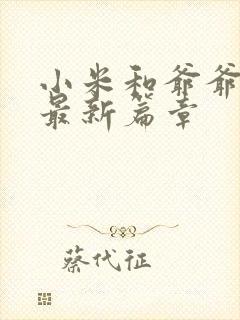 小米和爷爷
最新篇章
蔡代征